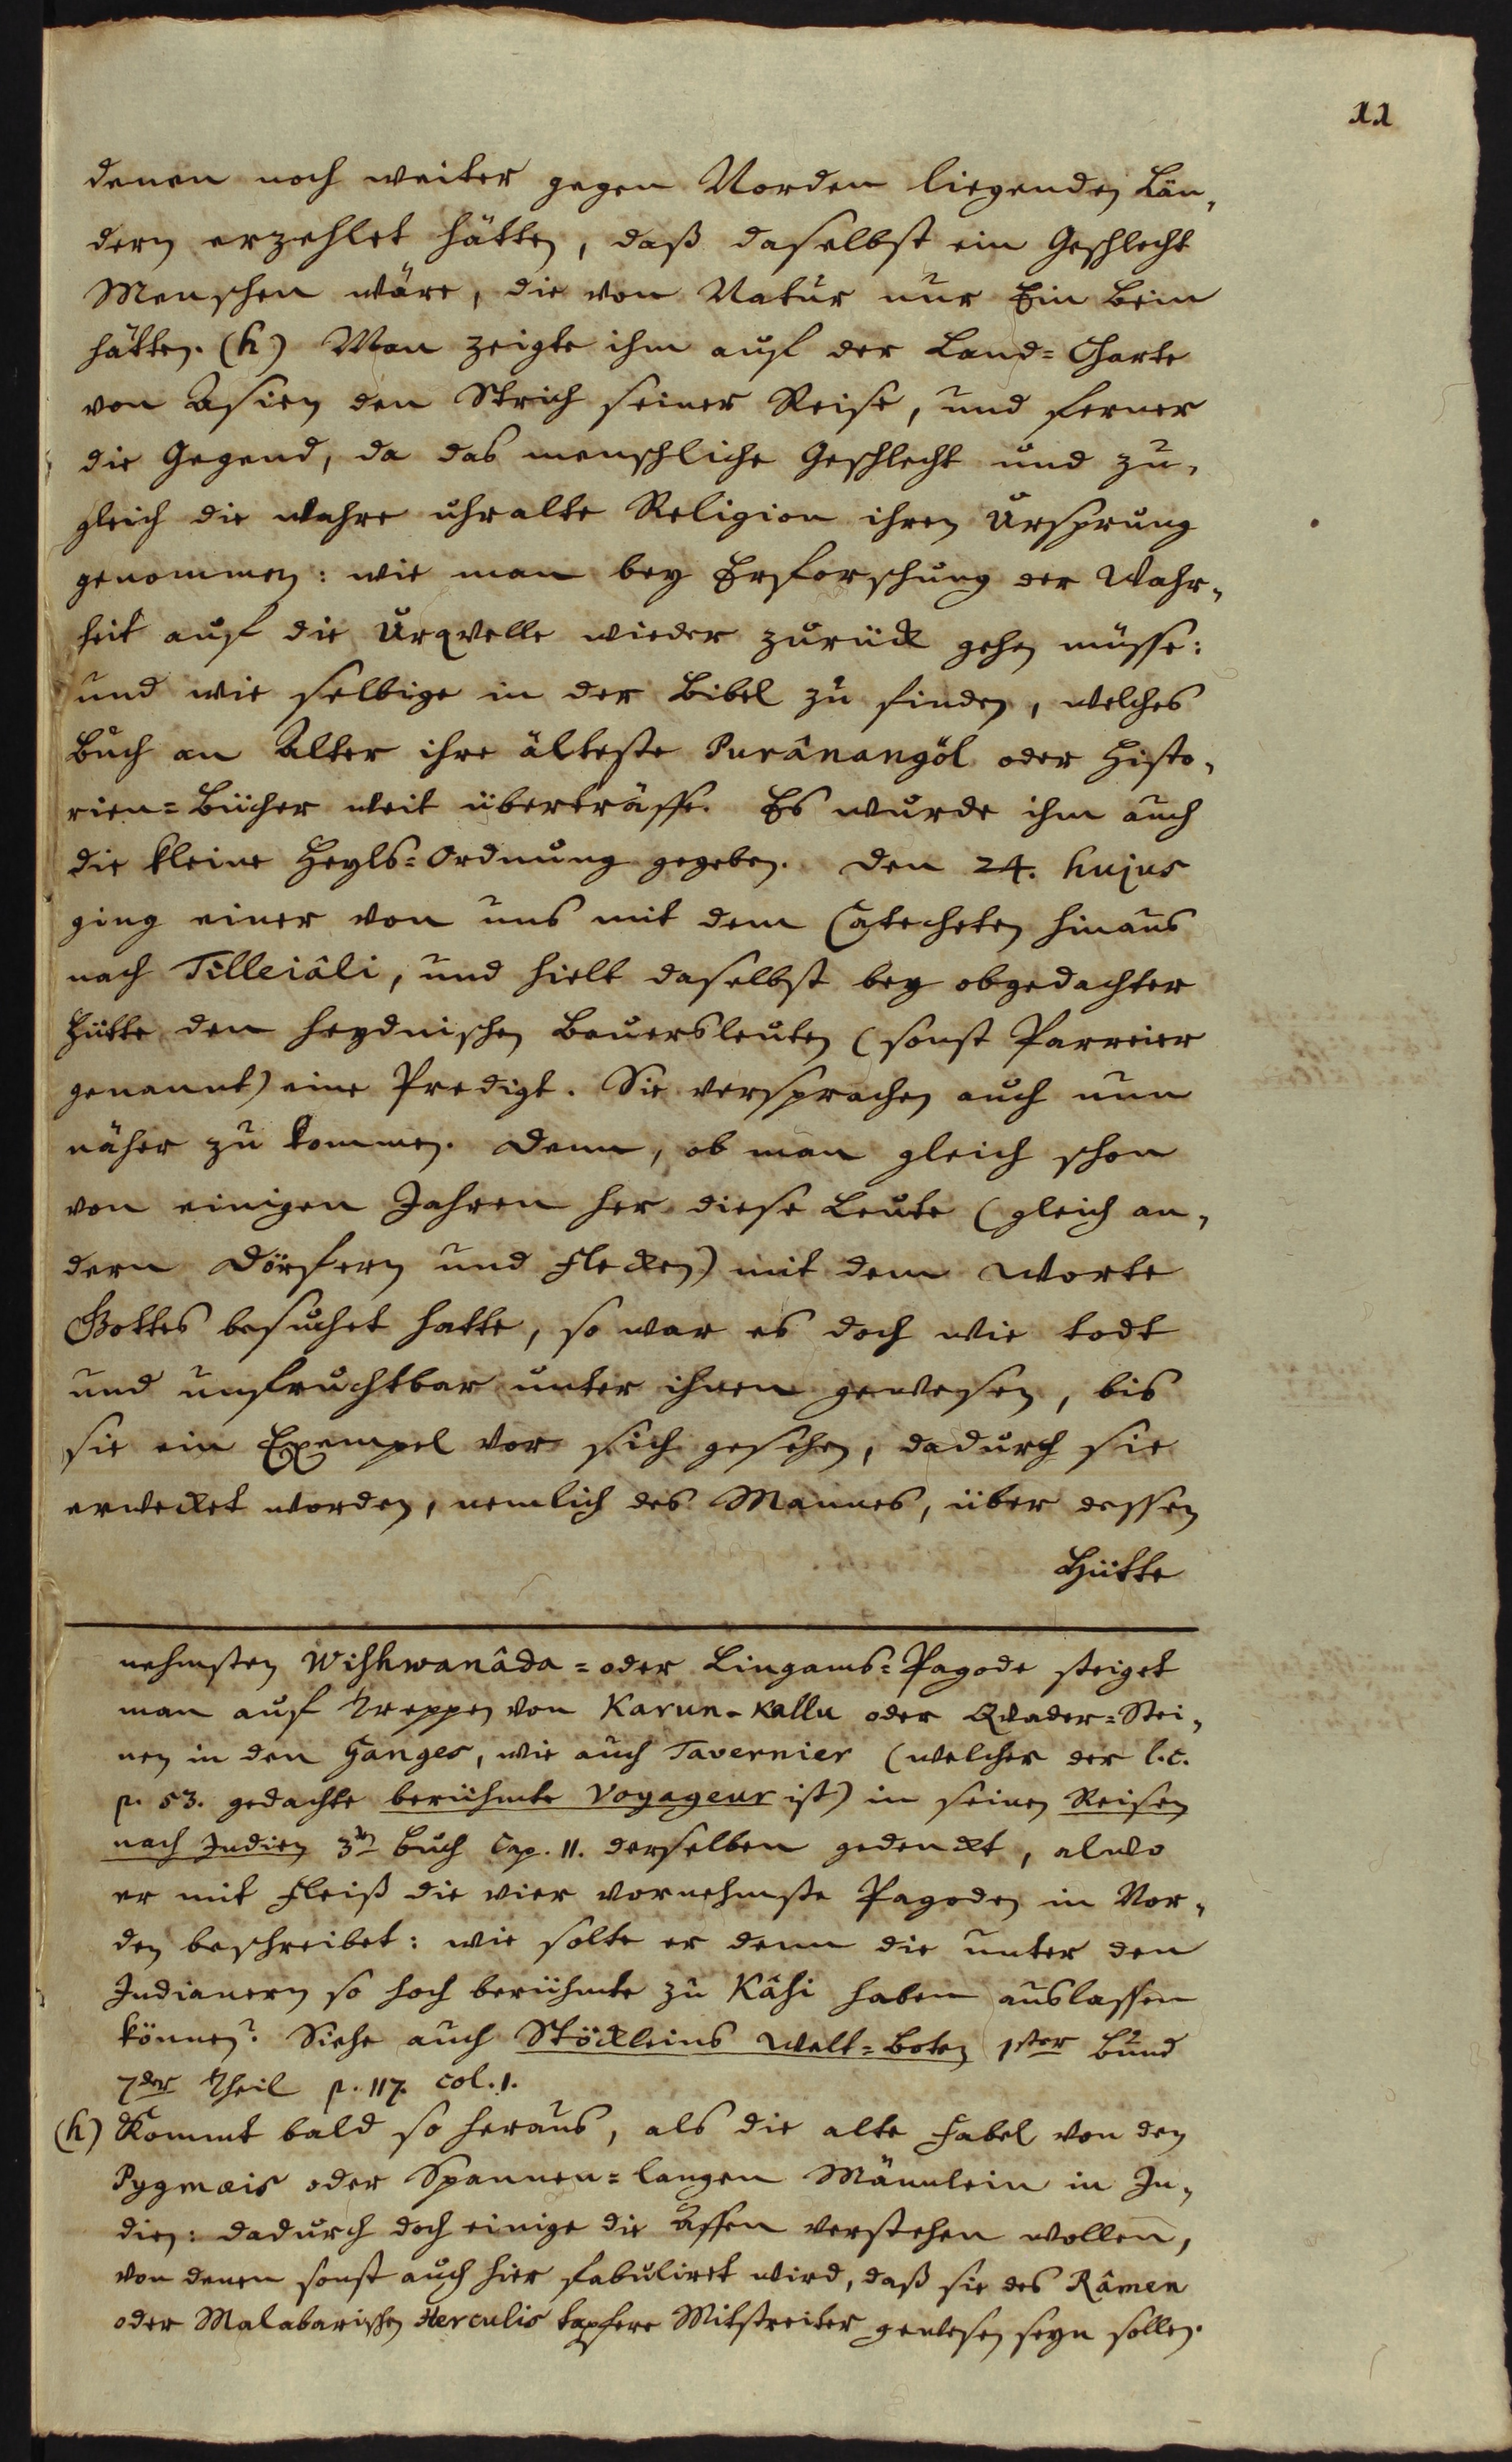 11
denen noch weiter gegen Norden liegenden Län-
dern erzehlet hätten, daß daselbst ein Geschlecht
Menschen wäre, die von Natur nur Ein Bein
hätten. (h) Man zeigte ihm auf der Land=Charte
von Asien den Strich seiner Reise, und ferner
die Gegend, da das menschliche Geschlecht und zu-
gleich die wahre uhralte Religion ihren Ursprung
genommen: wie man bey Erforschung der Wahr-
heit auf die Urqvelle wieder zurück gehen müsse:
und wie selbige in der Bibel zu finden, welches
Buch an Alter ihre älteste Purânangöl oder Histo-
rien=Bücher weit überträffe. Es wurde ihm auch
die kleine Heyls=Ordnung gegeben. Den 24. hujus
ging einer von uns mit dem Catecheten hinaus
nach Tilleiâli, und hielt daselbst bey obgedachter
Hütte den heydnischen Bauersleuten (sonst Parreier
genannt) eine Predigt. Sie versprachen auch nun
näher zu kommen. Denn, ob man gleich schon
von einigen Jahren her diese Leute (gleich an-
dern Dörfern und Flecken) mit dem Worte
Gottes besuchet hatte, so war es doch wie todt
und unfruchtbar unter ihnen gewesen, bis
sie ein Exempel vor sich gesehen, dadurch sie
erwecket worden, nemlich des Mannes, über dessen
Hütte
nehmsten Wishwanâda=oder Lingams=Pagode steiget
man auf Treppen von Karun-Kallu oder Qvader=Stei-
nen in den Ganges, wie auch Tavernier (welcher der l.c.
p. 53. gedachte berühmte Voyageur ist) in seinen Reisen
nach Indien 3tn Buch Cap. 11. derselben gedenckt, alwo
er mit Fleiß die vier vornehmste Pagoden in Nor-
den beschreibet: wie solte er denn die unter den
Indianern so hoch berühmte zu Kâshi haben auslassen
können? Siehe auch Stöckleins Welt=Boten 1ster Bund
7der Theil p. 117. col. 1.
(h) Kommt bald so heraus, als die alte Fabel von den
Pygmæis oder Spannen=langen Männlein in In-
dien: dadurch doch einige die Affen verstehen wollen,
von denen sonst auch hier fabuliret wird, daß sie des Râmen
oder Malabarischen Herculis tapfere Mitstreiter gewesen seyn sollen.